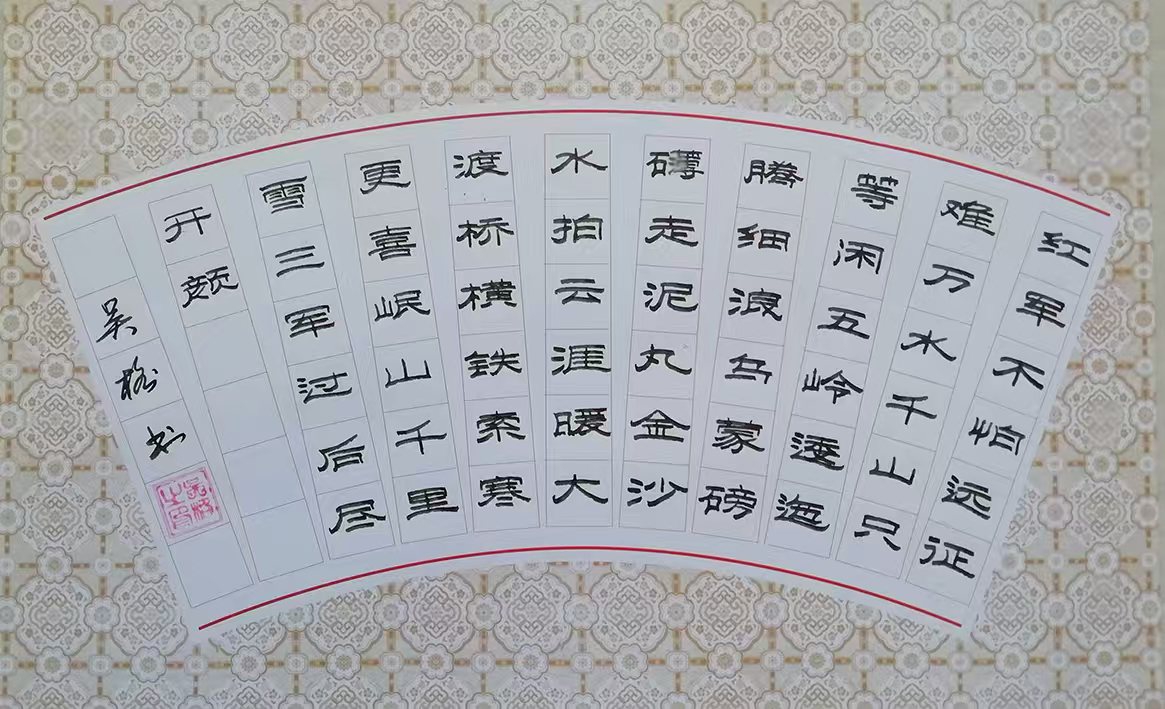 红军不怕远征
难万水千山只
等闲五岭逶迤
腾细浪乌蒙磅
礴走泥丸金沙
水拍云涯暖大
渡桥横铁索寒
更喜岷山千里
雪三军过后尽
开颜
吴书